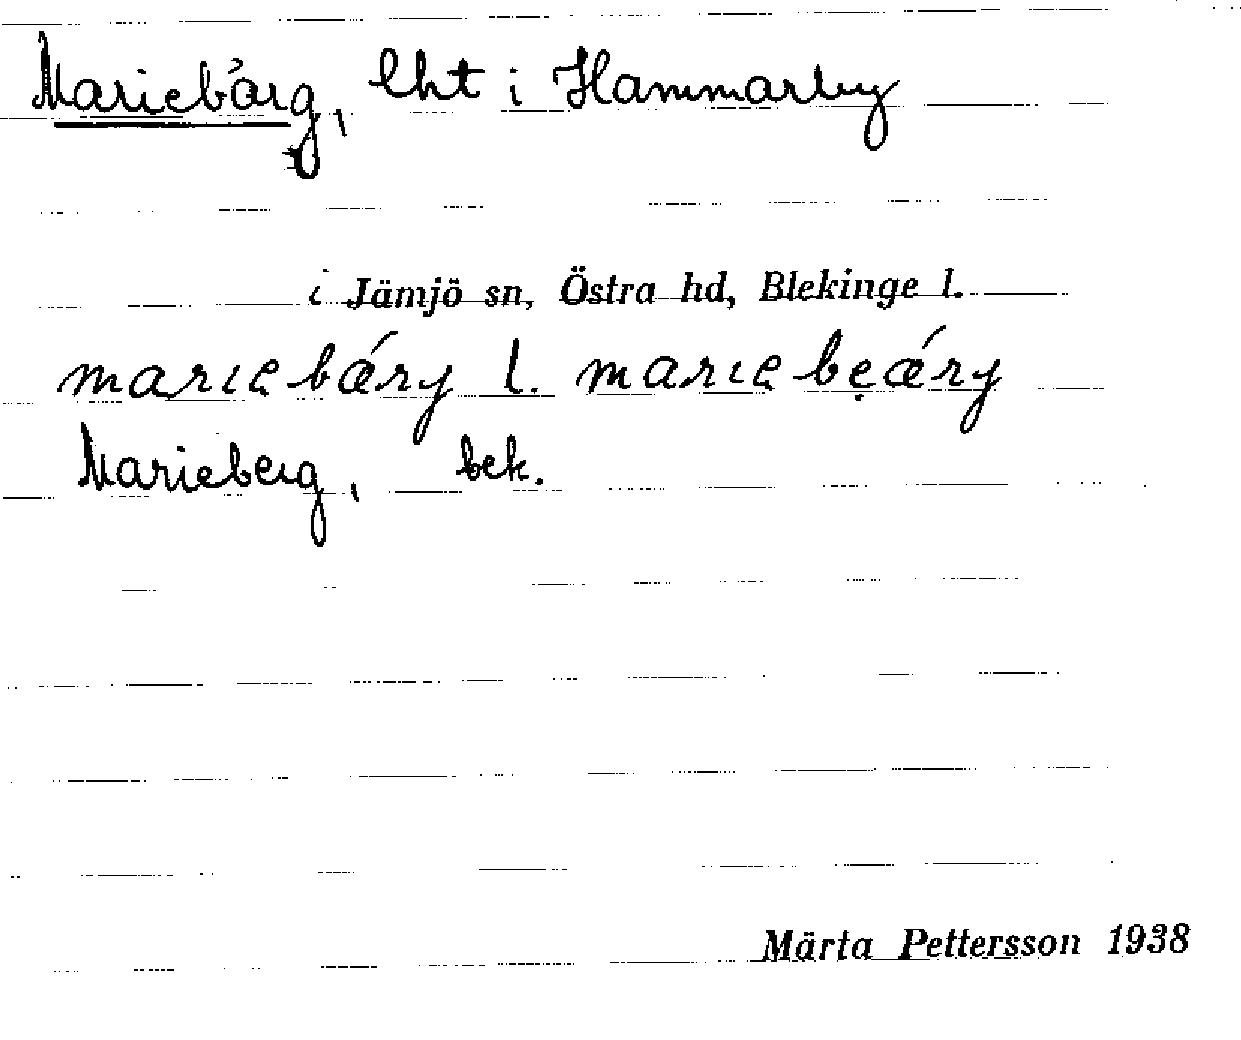 Mariebärg, lht i Hammarby
i Jämjö sn, Östra hd, Blekinge l.
marıebǽry l. marıebẹǽry
Marieberg, bek.
Märta Pettersson 1938